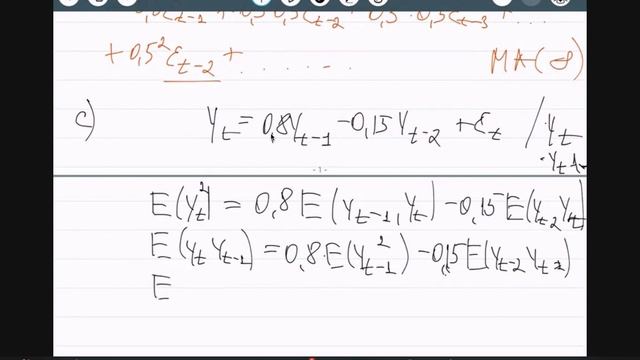 + 0,5²ε_{t-2} + . . . . . . MA(∞)
c) Y_t = 0,8Y_{t-1} - 0,15Y_{t-2} + ε_t / ·Y_t
- 1 -
E(Y_t²) = 0,8 E(Y_{t-1}, Y_t) - 0,15 E(Y_{t-2} Y_t)
E(Y_t Y_{t-1}) = 0,8·E(Y_{t-1}²) - 0,15 E(Y_{t-2} Y_{t-1})
E